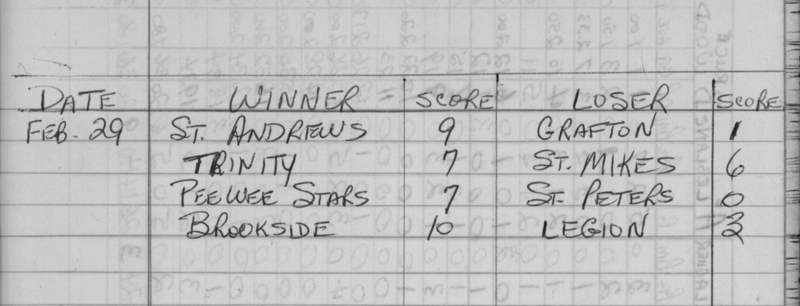 DATE WINNER SCORE LOSER SCORE
FEB. 29 ST. ANDREWS 9 GRAFTON 1
TRINITY 7 ST. MIKES 6
PEEWEE STARS 7 ST. PETERS 0
BROOKSIDE 10 LEGION